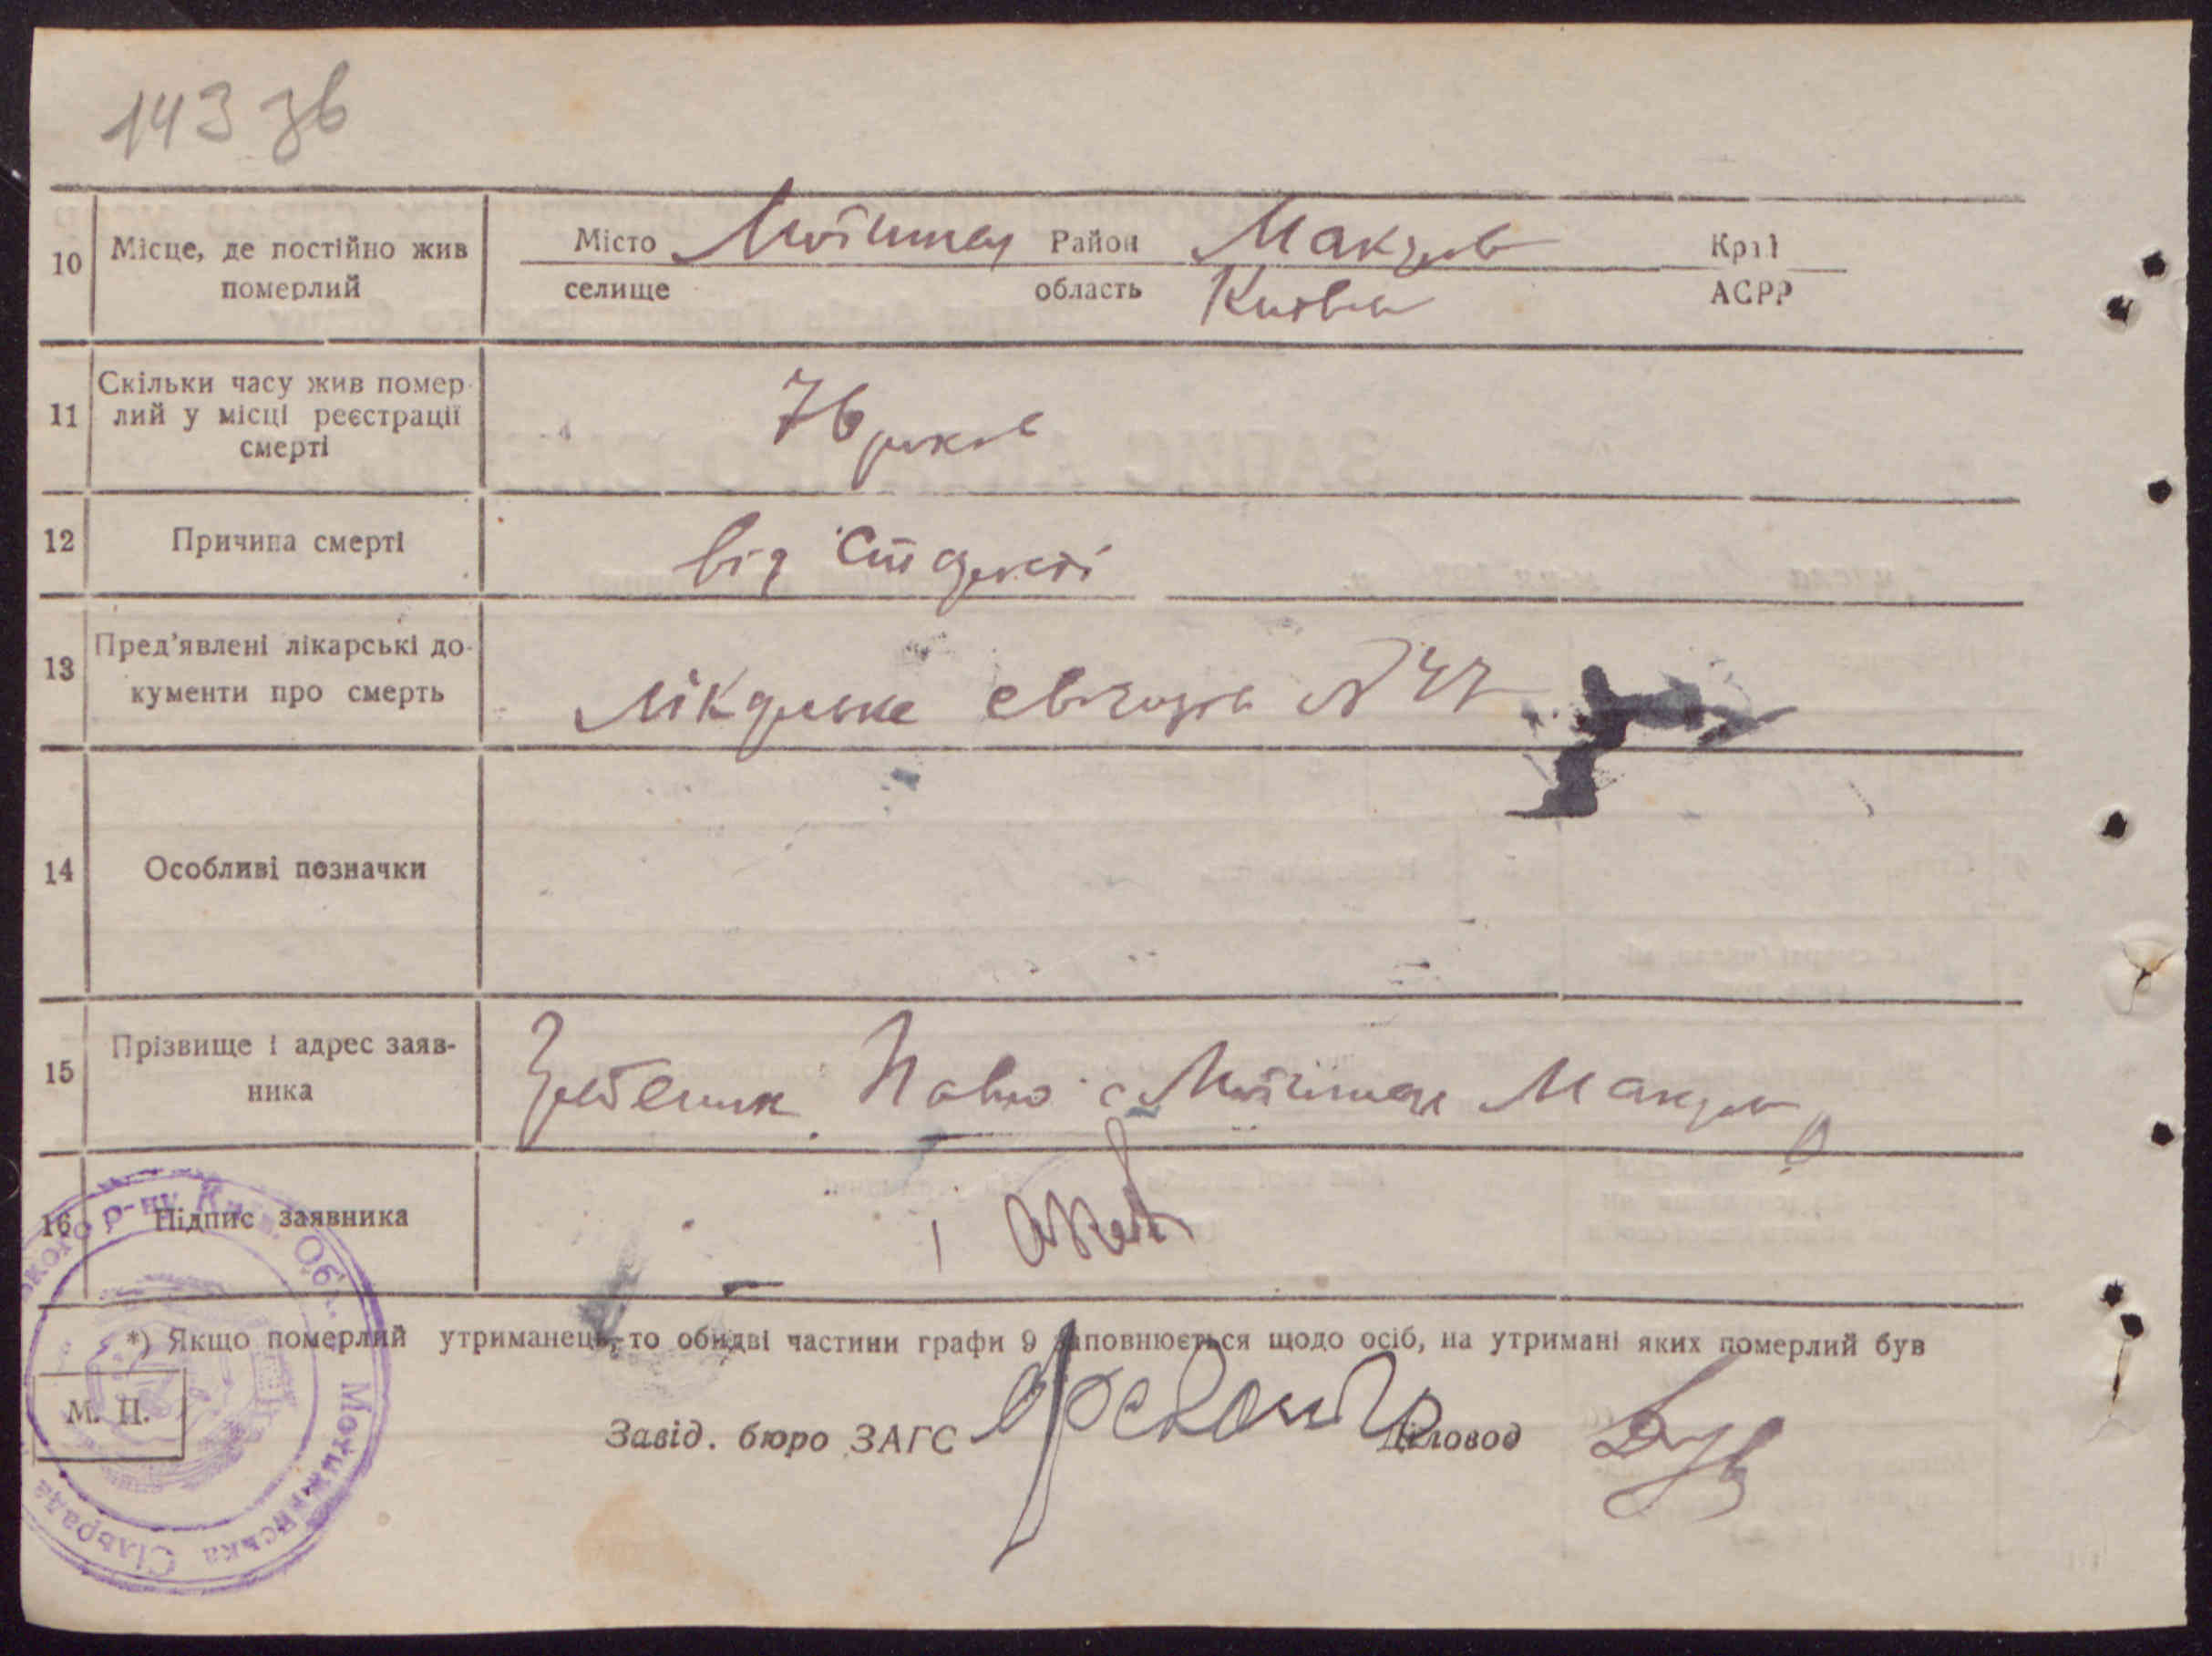 143 зв
10 Місце, де постійно жив померлий
Місто Мотижин Район Макарів Край
селище область Київська АСРР
11 Скільки часу жив помер-
лий у місці реєстрації
смерті
76 років
12 Причина смерті
від старості
13 Пред'явлені лікарські до-
кументи про смерть
лікарське №47
14 Особливі позначки
15 Прізвище і адрес заяв-
ника
Павло с Мотижин Макарів
16 Підпис заявника
*) Якщо померлий утриманець, то обидві частини графи 9 заповнюється щодо осіб, на утримані яких померлий був
М. П.
Завід. бюро ЗАГС Діловод
р-ну Київ. Обл. Мотижинська Сільрада